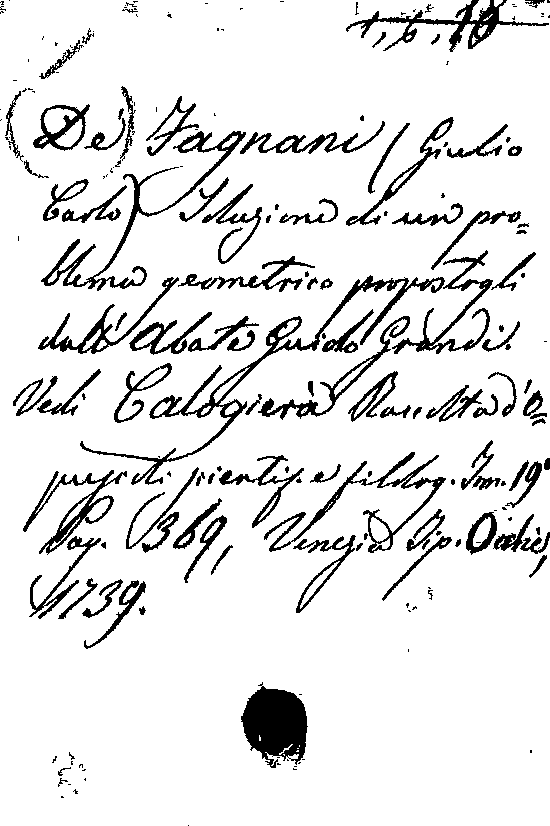 1, 6, 18
(De') Fagnani (Giulio
Carlo) Soluzione di un pro=
blema geometrico propostogli
dall' Abate Guido Grandi.
Vedi Calogierà Raccolta d'O=
puscoli scientif. e filolog. Tom. 19°
Pag. 369, Venezia Tip. Occhi,
1739.